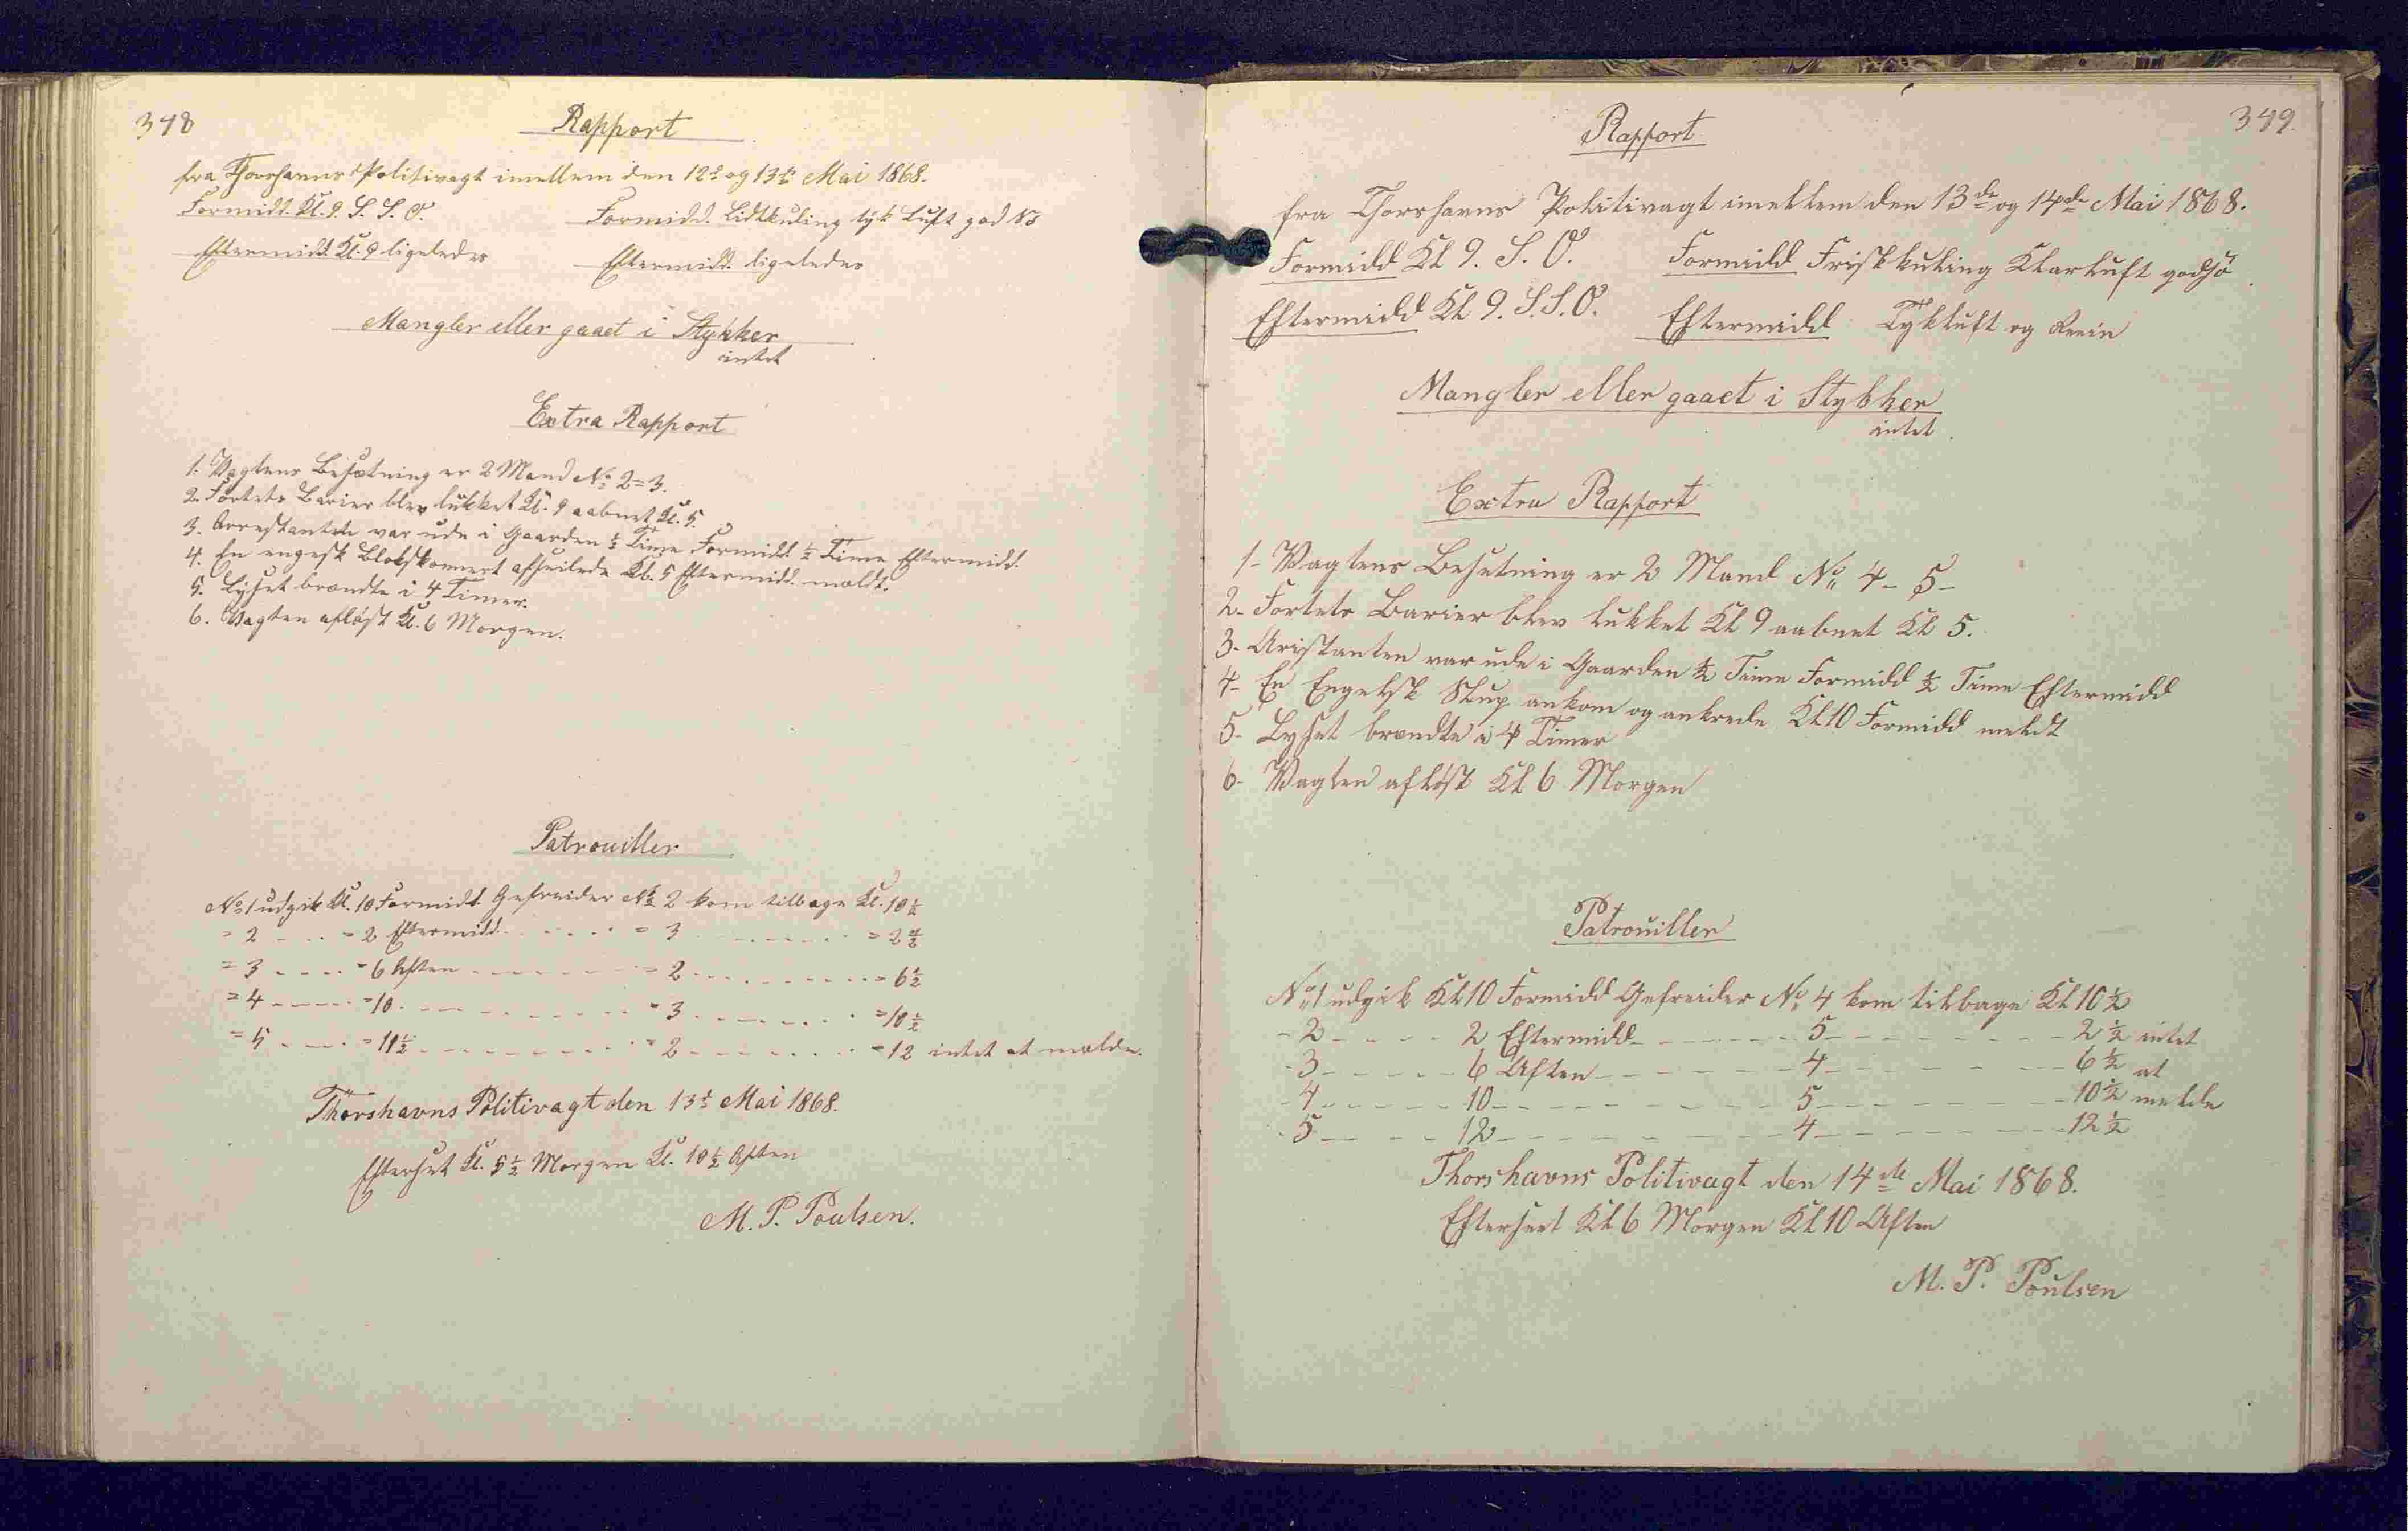 348
Rapport
fra Thorshavns Politivagt imellem den 12de og 13de Mai 1868.
Formidd. Kl. 9. S. S. O. Formidd. Lidtkuling tyk Luft god Sö
Eftermidd. Kl. 9 ligeledes Eftermidd. ligeledes
Mangler eller gaaet i Stykker
intet
Extra Rapport
1. Vagtens Besætning er 2 Mand No 2=3.
2. Fortets Barier blev lukket Kl. 9 aabnet Kl. 5.
3. Arrestanten var ude i Gaarden ½ Time Formidd ½ Time Eftermidd.
4. En engelsk Slobskonnert afseilede Kl. 5 Eftermidd. meldt.
5. Lyset brændte i 4 Timer.
6. Vagten afløst Kl. 6 Morgen.
Patrouiller
No 1 udgik Kl. 10 Formidd. Gefreider No 2 kom tilbage Kl. 10½
= 2 - - - = 2 Eftermidd. - - - - = 3 - - - - - = 2½
= 3 - - - - = 6 Aften - - - - - = 2 - - - - - = 6½
= 4 - - - - = 10 - - - - - - = 3 - - - - - = 10½
= 5 - - - = 11½ - - - - - - = 2 - - - - - = 12 intet at melde.
Thorshavns Politivagt den 13de Mai 1868.
Efterset Kl. 5½ Morgen Kl. 10½ Aften
M. P. Poulsen.
349.
Rapport
fra Thorshavns Politivagt imellem den 13de og 14de Mai 1868.
Formidd Kl 9. S. O. Formidd Friskkuling Klarluft godsö
Eftermidd Kl 9. S. S. O. Eftermidd Tykluft og Rein
Mangler eller gaaet i Stykker
intet.
Extra Rapport
1- Vagtens Besetning er 2 Mand No 4- 5-
2- Fortets Barier blev lukket Kl 9 aabnet Kl 5.
3- Aristanten var ude i Gaarden ½ Time Formidd ½ Time Eftermidd
4- En Engelsk Slup ankom og ankrede Kl 10 Formidd meldt
5- Lyset brændte i 4 Timer
6- Vagten afløst Kl 6 Morgen
Patrouiller
No 1 udgik Kl 10 Formidd Gefreider No 4 kom tilbage Kl 10½
- 2 - - - - 2 Eftermidd - - - - - 5 - - - - - 2½ intet
- 3 - - - - 6 Aften - - - - - 4 - - - - - 6½ at
- 4 - - - - 10 - - - - - - 5 - - - - - 10½ melde
- 5 - - - - 12 - - - - - - 4 - - - - - 12½
Thorshavns Politivagt den 14de Mai 1868.
Efterseet Kl 6 Morgen Kl 10 Aften
M. P. Poulsen